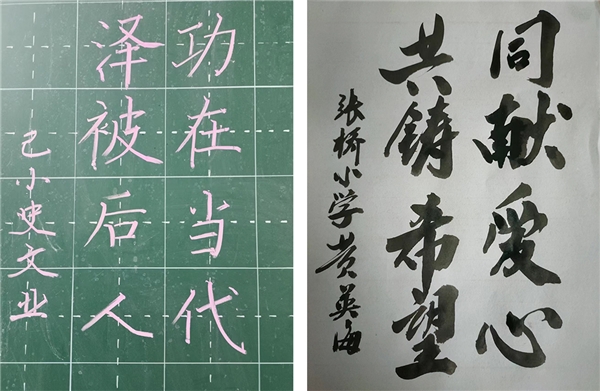 功在当代
泽被后人
己小史文业
同献爱心
共铸希望
张桥小学黄英海